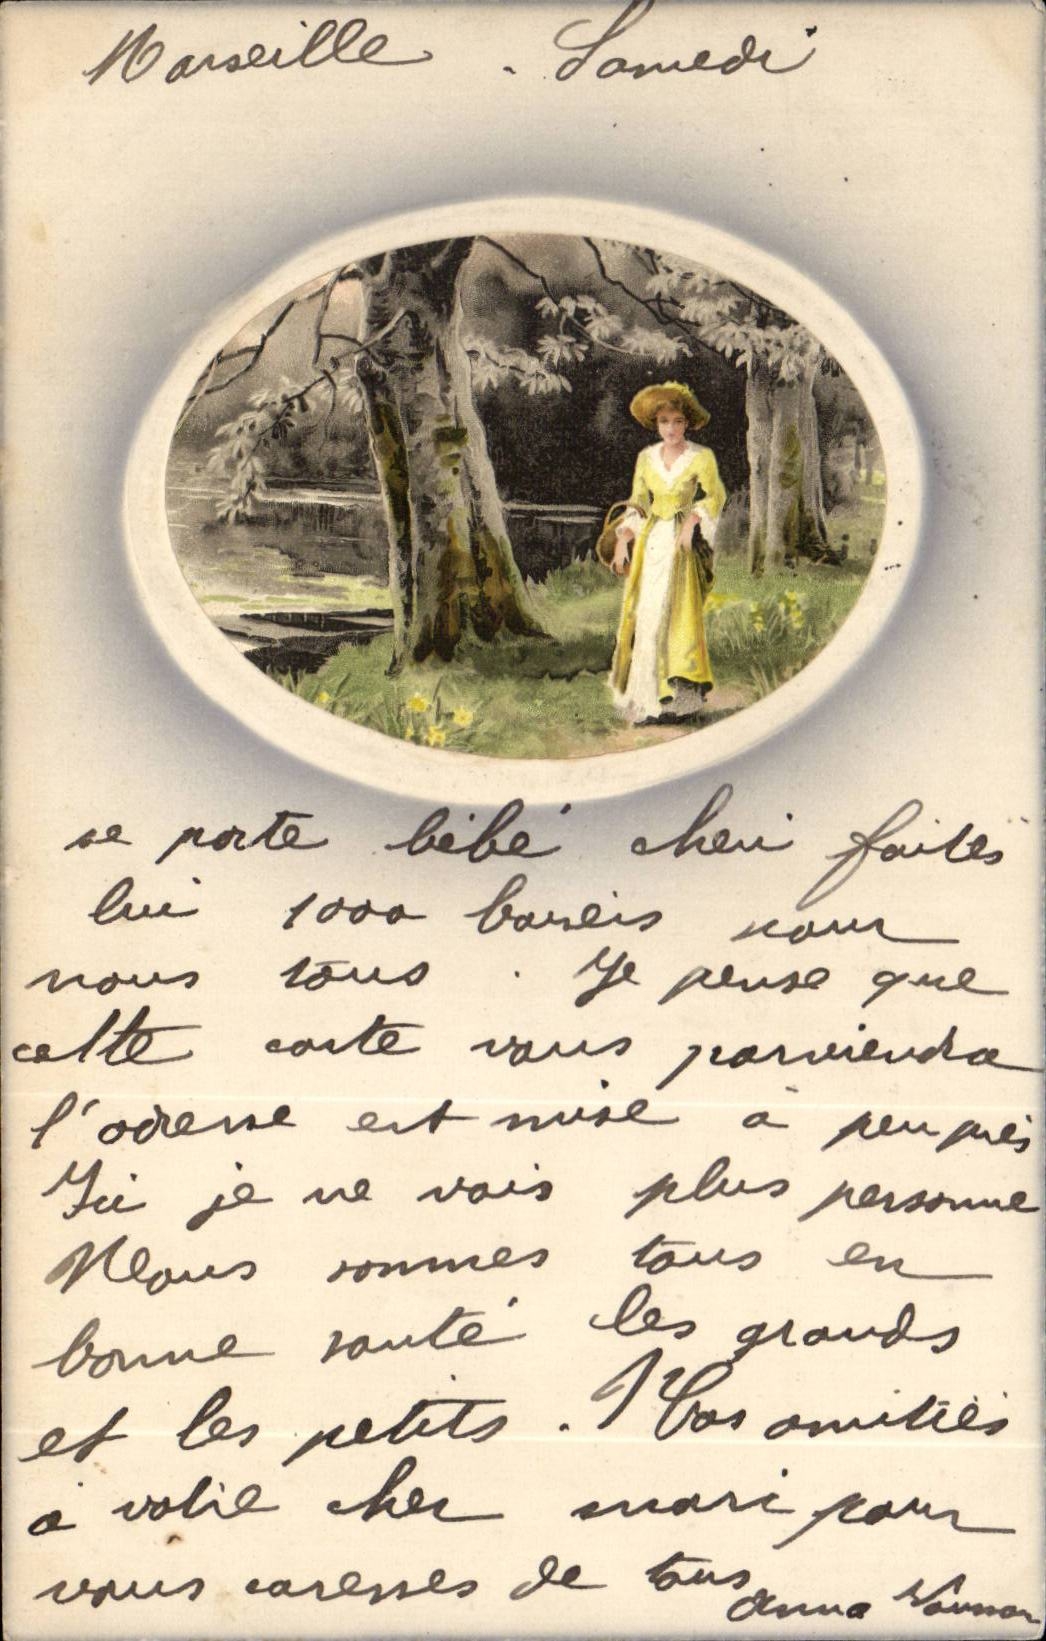 Marseille . Samedi
se porte bébé cheri faites
lui 1000 baisers pour
nous tous . Je pense que
cette carte vous parviendra
l'adresse est mise à peu près
Ici je ne vois plus personne
Nous sommes tous en
bonne santé les grands
et les petits . Nos amitiés
à votre cher mari pour
vous caresses de tous
Anna